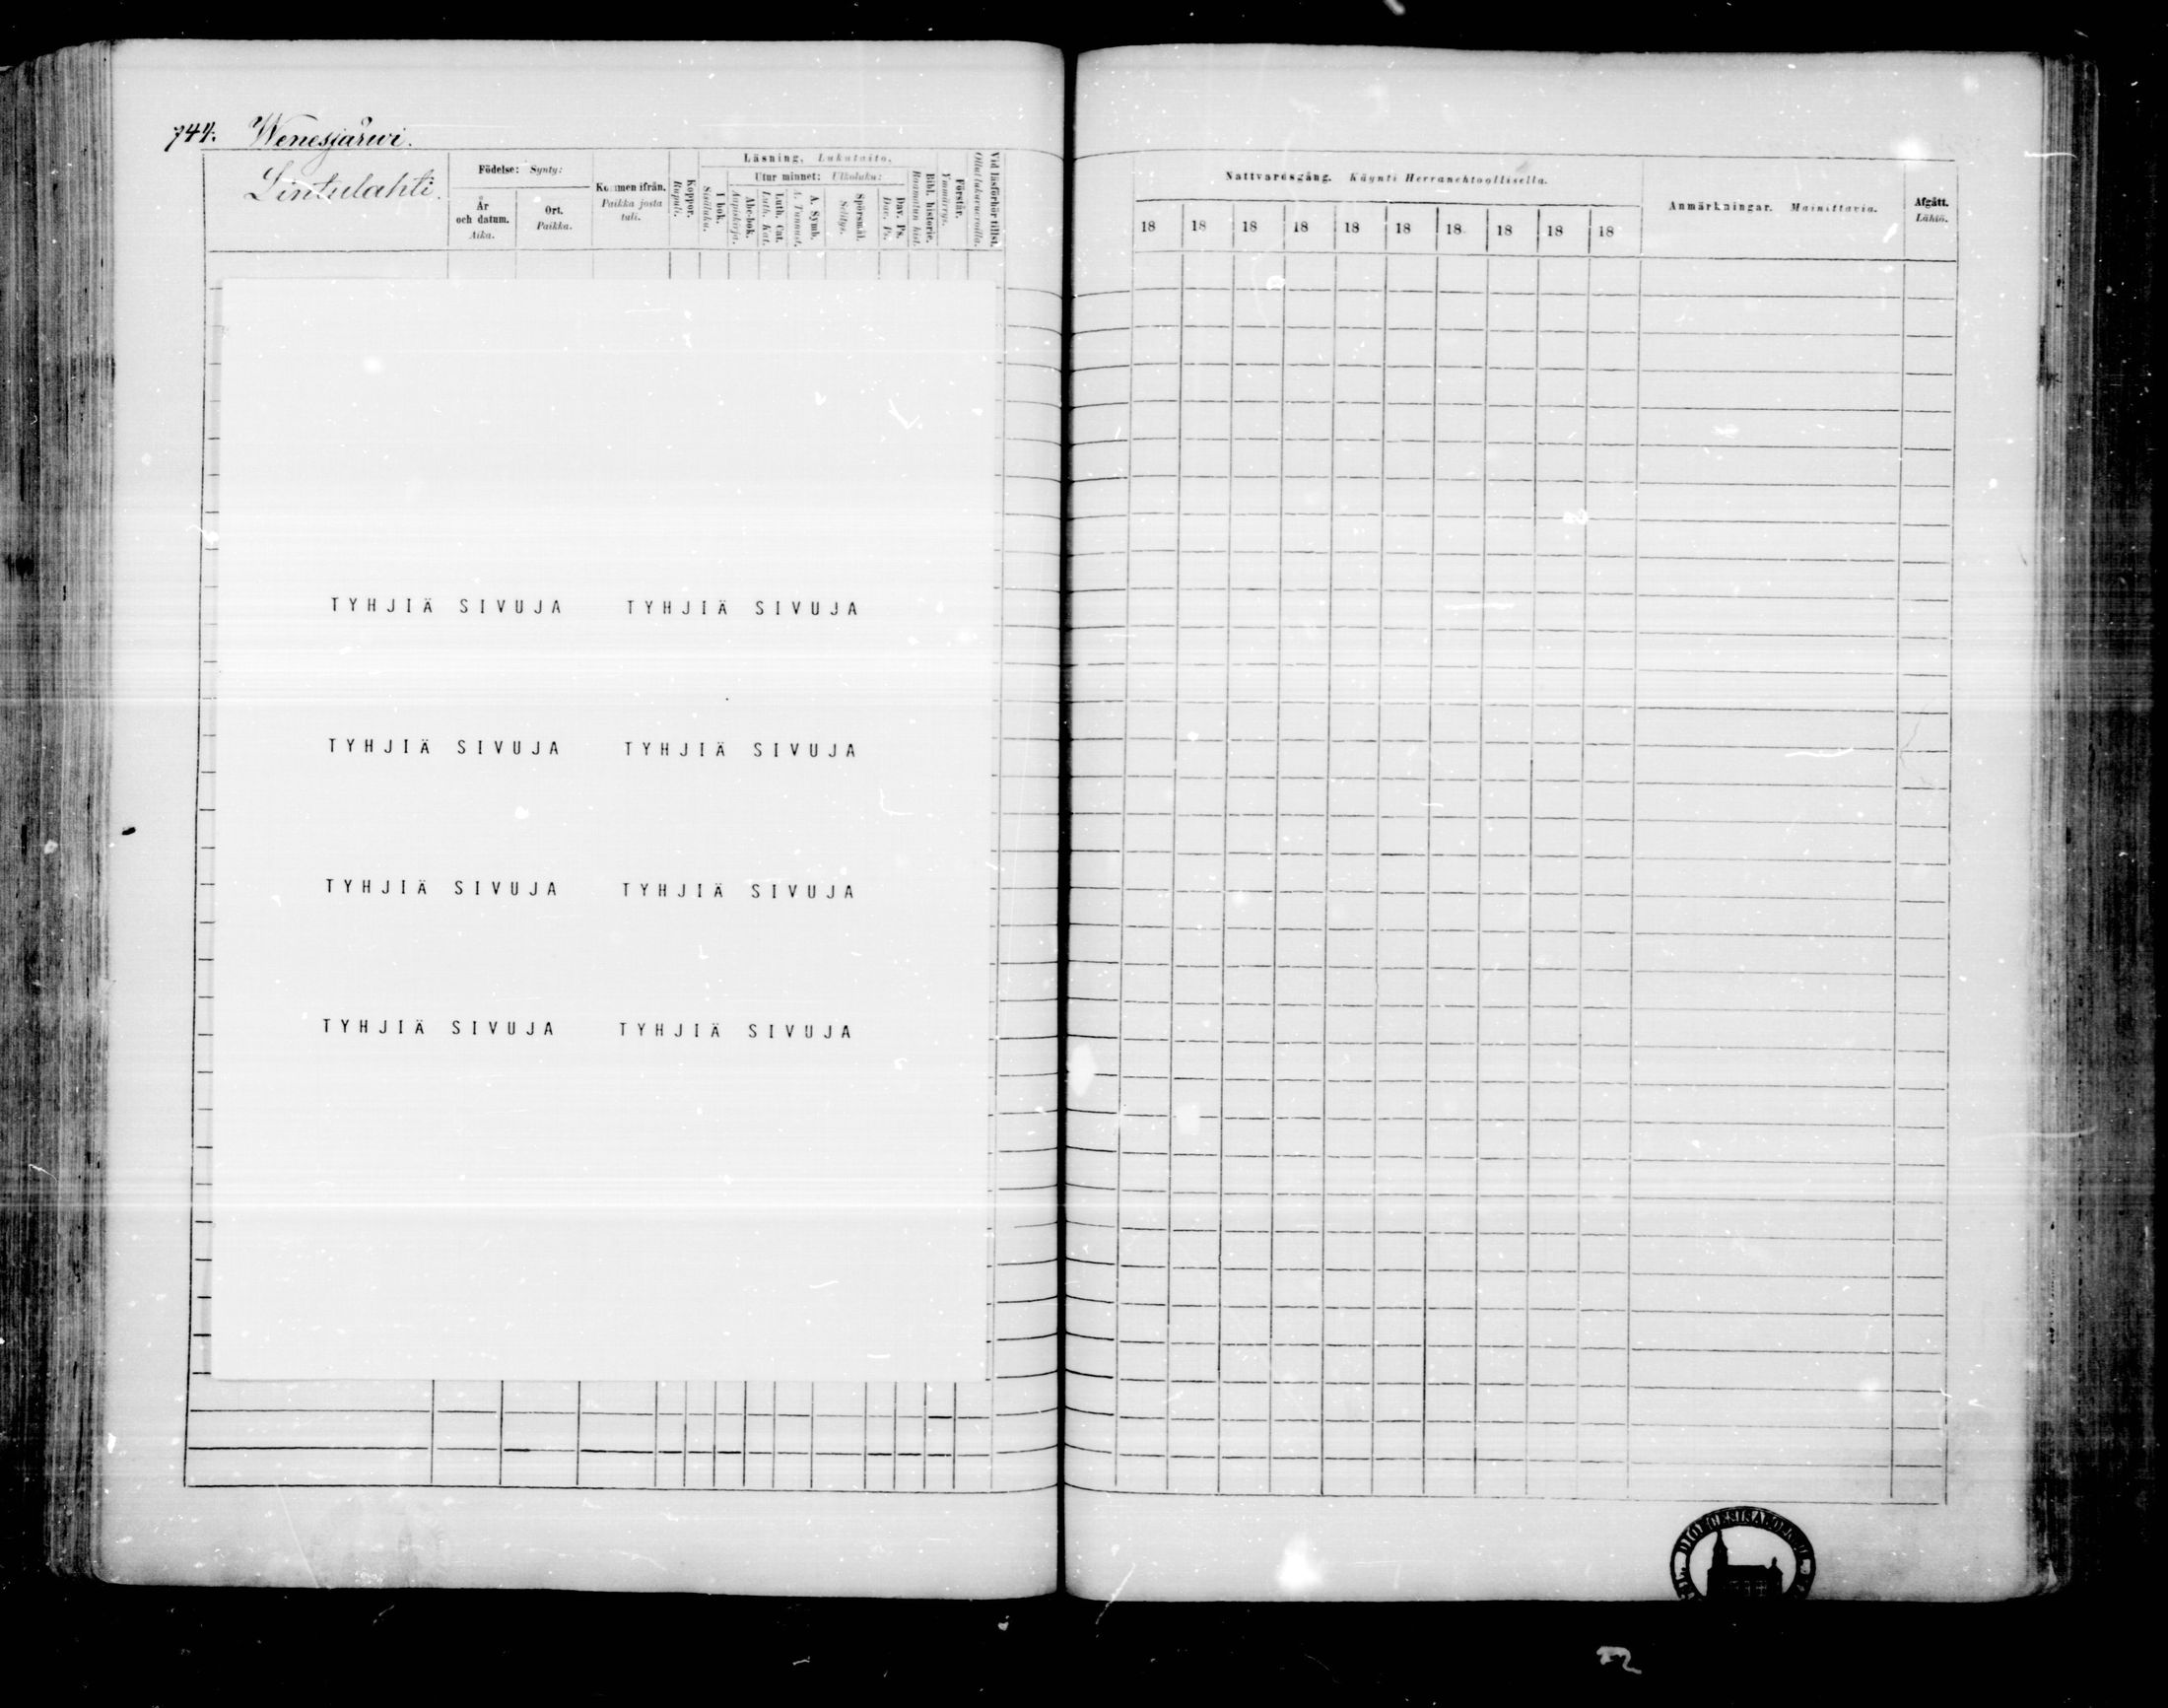 744. Wenesjärwi.
Lintulahti.
Födelse: Synty:
År och datum. Aika.
Ort. Paikka.
Kommen ifrån. Paikka josta tuli.
Koppor. Rupuli.
Läsning, Lukutaito,
I bok. Sisäluku.
Utur minnet: Ulkoluku:
Abc-bok. Aapiskirja.
Luth. Cat. Luth. Kat.
A. Symb. A. Tunnust.
Spörsmål. Selitys.
Dav. Ps. Dav. Ps.
Bibl. historie. Raamatun hist.
Förstår. Ymmärrys.
Vid läsförhör tillst. Ollut lukuvuoroilla.
TYHJIÄ SIVUJA TYHJIÄ SIVUJA
TYHJIÄ SIVUJA TYHJIÄ SIVUJA
TYHJIÄ SIVUJA TYHJIÄ SIVUJA
TYHJIÄ SIVUJA TYHJIÄ SIVUJA
Nattvardsgång. Käynti Herranehtoollisella.
18 18 18 18 18 18 18 18 18 18
Anmärkningar. Mainittavia.
Afgått. Lähtö.